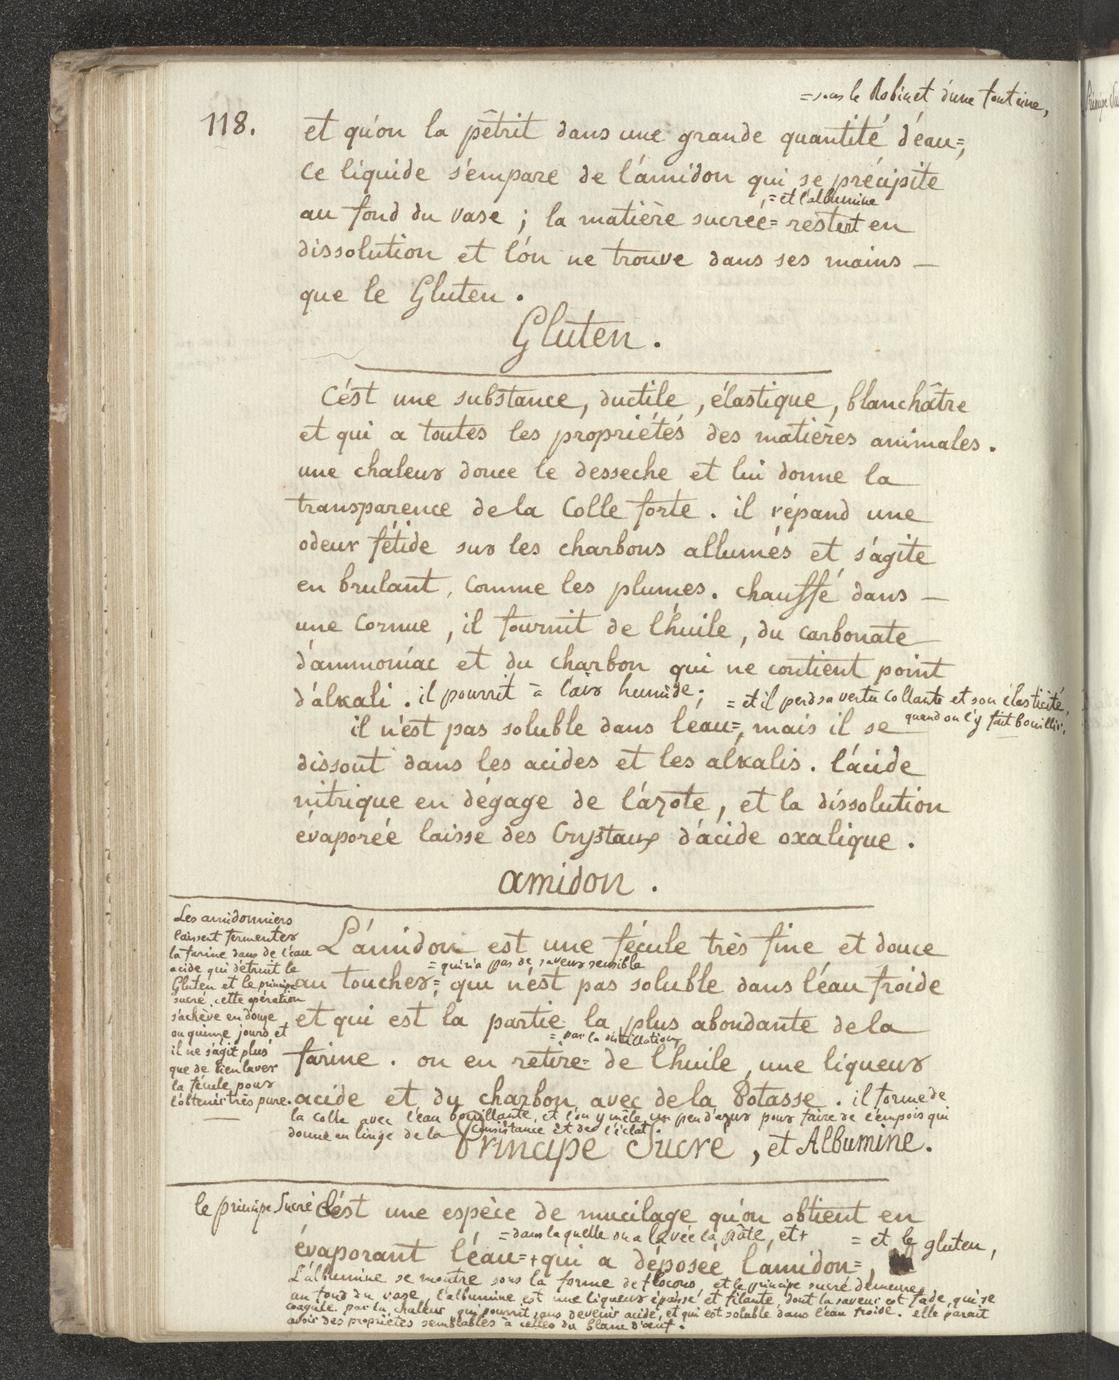 =sous le Robinet d'une fontaine,
118.
et qu'on la pêtrit dans une grande quantité d'eau=,
Ce liquide s'empare de l'amidon qui se précipite
,=et l'albumine
au fond du vase ; la matière sucrée= restent en
dissolution et l'on ne trouve dans ses mains —
que le Gluten .
Gluten .
C'est une substance, ductile , élastique , blanchâtre
et qui a toutes les propriétés des matières animales .
une chaleur douce le desseche et lui donne la
transparence de la Colle forte . il répand une
odeur fétide sur les charbons allumés et s'agite
en brulant , comme les plumes . chauffé dans —
une Cornue , il fournit de l'huile , du carbonate
d'ammoniac et du charbon qui ne contient point
d'alkali . il pourrit à l'air humide ;
= et il perd sa vertu collante et son élasticité,
quand on l'y fait bouillir.
il n'est pas soluble dans l'eau=, mais il se
dissout dans les acides et les alkalis . l'acide
nitrique en dégage de l'azote , et la dissolution
évaporée laisse des Crystaux d'acide oxalique .
amidon .
Les amidonniers
laissent fermenter
la farine dans de l'eau
acide qui détruit le
Gluten et le principe
sucré. cette opération
s'achève en douze
ou quinze jours et
il ne s'agit plus
que de bien laver
la fécule pour
l'obtenir très pure.
L'amidon est une fécule très fine et douce
=qui n'a pas de saveur sensible
au toucher= qui n'est pas soluble dans l'eau froide
et qui est la partie la plus abondante de la
= par la distillation
farine . on en retire= de l'huile , une liqueur
acide et du charbon avec de la Potasse . il forme de
la colle avec l'eau bouillante, et l'on y mêle un peu d'azur pour faire de l'empois qui
donne au linge de la Consistance et de l'éclat.
Principe Sucré , et Albumine .
le principe Sucré C'est une espèce de mucilage qu'on obtient en
=dans laquelle on a lavée la pâte, et+
= et le gluten,
évaporant l'eau=+qui a déposée l'amidon=,
L'albumine se montre sous la forme de flocons et le principe sucré demeure
au fond du vase, l'albumine est une liqueur épaisse et filante, dont la saveur est fade, qui se
coagule par la chaleur qui pourrit sans devenir acide, et qui est soluble dans l'eau froide. elle parait
avoir des propriétés semblables à celles du blanc d'œuf.